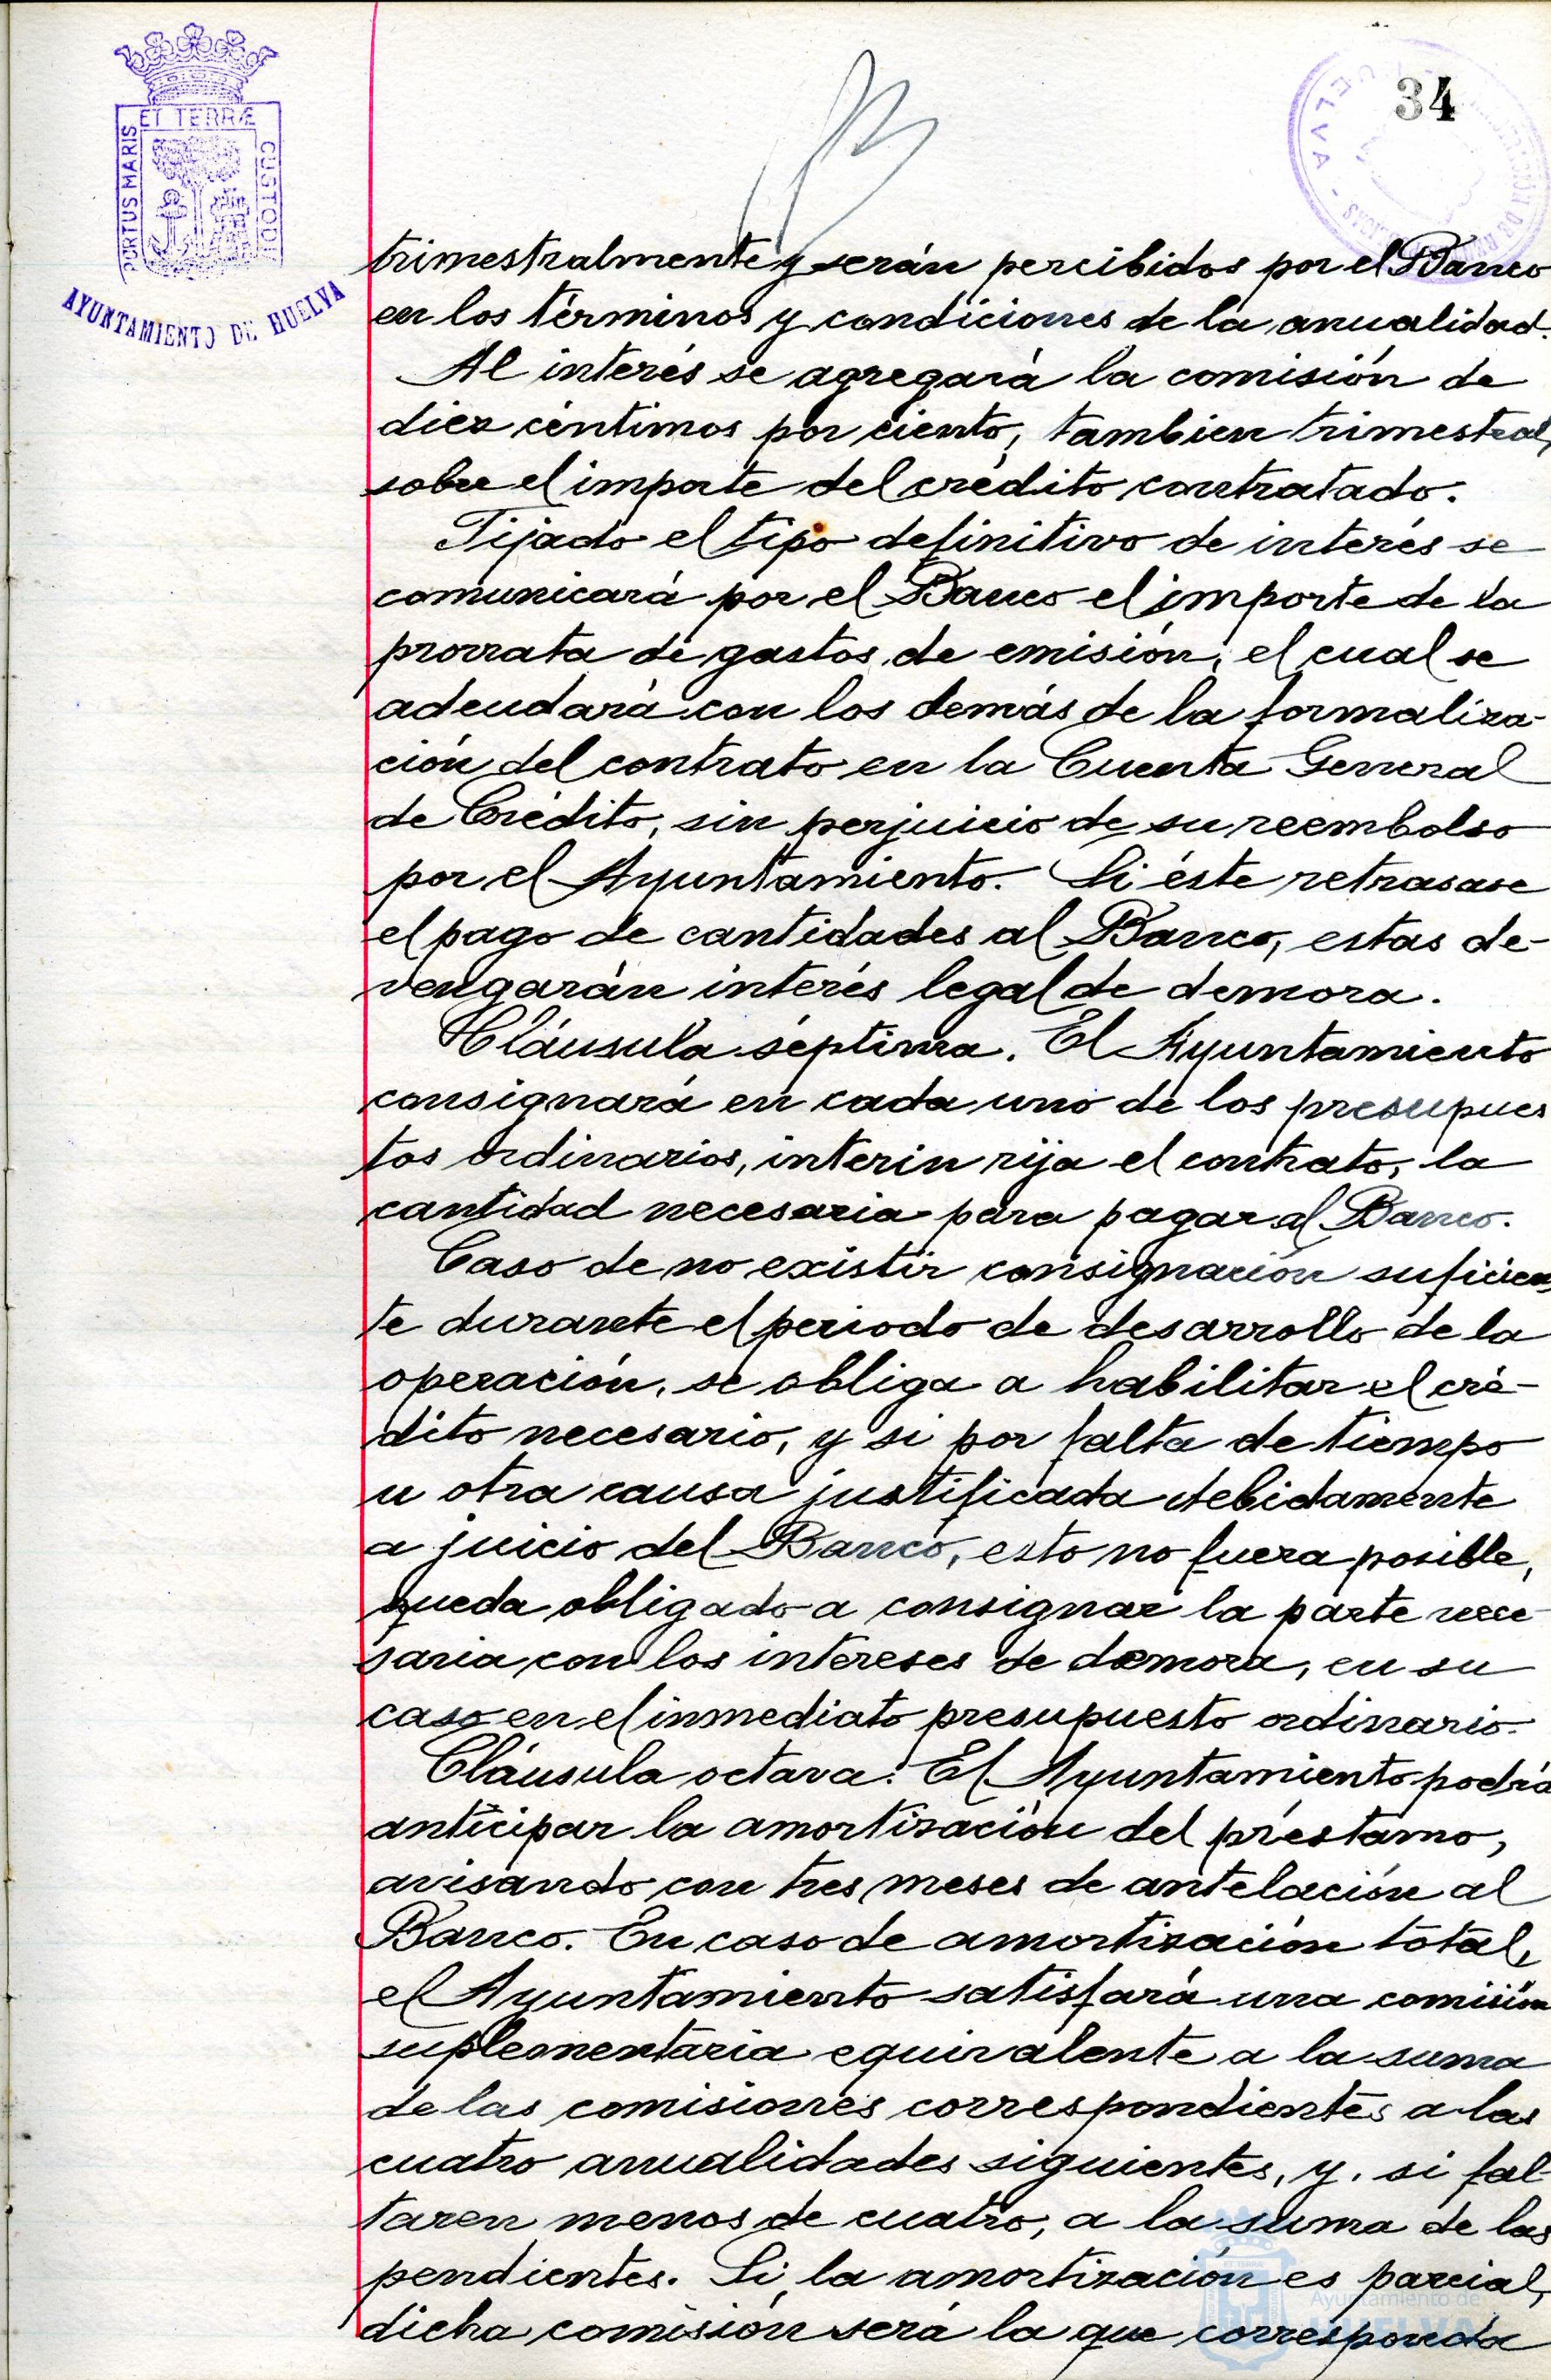 34
ET TERRÆ
PORTUS MARIS
CUSTODI
AYUNTAMIENTO DE HUELVA
trimestralmente y serán percibidos por el Banco
en los términos y condiciones de la anualidad.
Al interés se agregará la comisión de
diez céntimos por ciento, tambien trimestral,
sobre el importe del crédito contratado.
Fijado el tipo definitivo de interés se
comunicará por el Banco el importe de la
prorrata de gastos de emisión, el cual se
adeudará con los demás de la formaliza-
ción del contrato en la Cuenta General
de Crédito, sin perjuicio de su reembolso
por el Ayuntamiento. Si éste retrasase
el pago de cantidades al Banco, estas de-
vengarán interés legal de demora.
Cláusula séptima. El Ayuntamiento
consignará en cada uno de los presupues
tos ordinarios, interin rija el contrato, la
cantidad necesaria para pagar al Banco.
Caso de no existir consignación suficien
te durante el periodo de desarrollo de la
operación, se obliga a habilitar el cré-
dito necesario, y si por falta de tiempo
u otra causa justificada debidamente
a juicio del Banco, esto no fuera posible,
queda obligado a consignar la parte nece-
saria con los intereses de demora, en su
caso en el inmediato presupuesto ordinario.
Cláusula octava. El Ayuntamiento podrá
anticipar la amortización del préstamo,
avisando con tres meses de antelación al
Banco. En caso de amortización total,
el Ayuntamiento satisfará una comisión
suplementaria equivalente a la suma
de las comisiones correspondientes a las
cuatro anualidades siguientes, y, si fal-
taren menos de cuatro, a la suma de las
pendientes. Si la amortización es parcial,
dicha comisión será la que corresponda
Ayuntamiento de
HUELVA